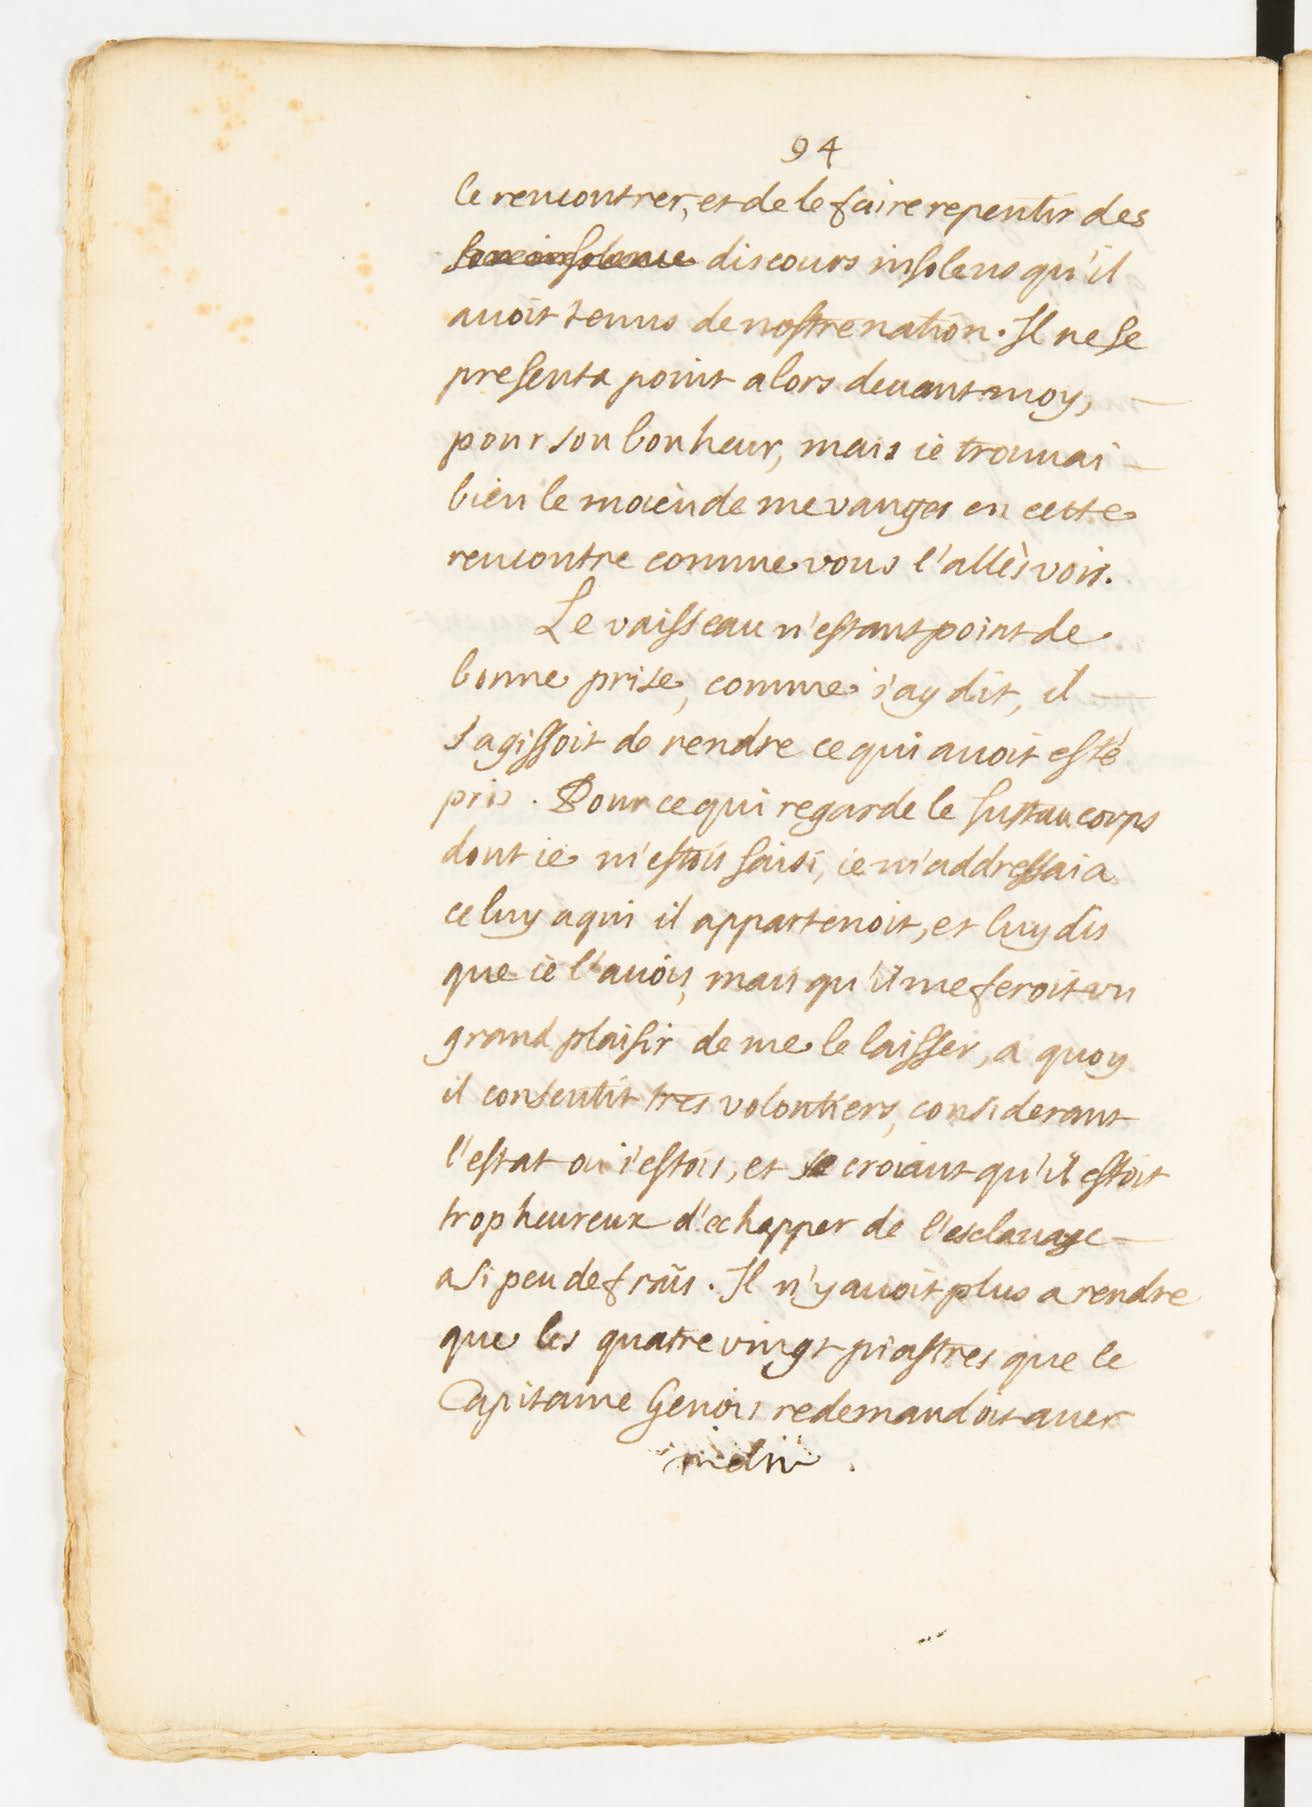 94
le rencontrer, et de le faire repentir des
son insolence discours insolens qu'il
auoit tenus de nostre nation. Il ne se
presenta point alors deuant moy,
pour son bonheur, mais ie trouuai
bien le moien de me vanger en cette
rencontre comme vous l'allès voir.
Le vaisseau n'estant point de
bonne prise, comme i'ay dit, il
s'agissoit de rendre ce qui auoit esté
pris. Pour ce qui regarde le sustaucorps
dont ie m'estois saisi, ie m'addressai a
celuy a qui il appartenoit, et luy dis
que ie l'auois, mais qu'il me feroit un
grand plaisir de me le laisser, a quoy
il consentit tres volontiers, considerant
l'estat ou i'estois, et se croiant qu'il estoit
trop heureux d'echapper de l'esclauage
a si peu de frais. Il n'y auoit plus a rendre
que les quatre vingt piastres que le
Capitaine Genois redemandoit auec